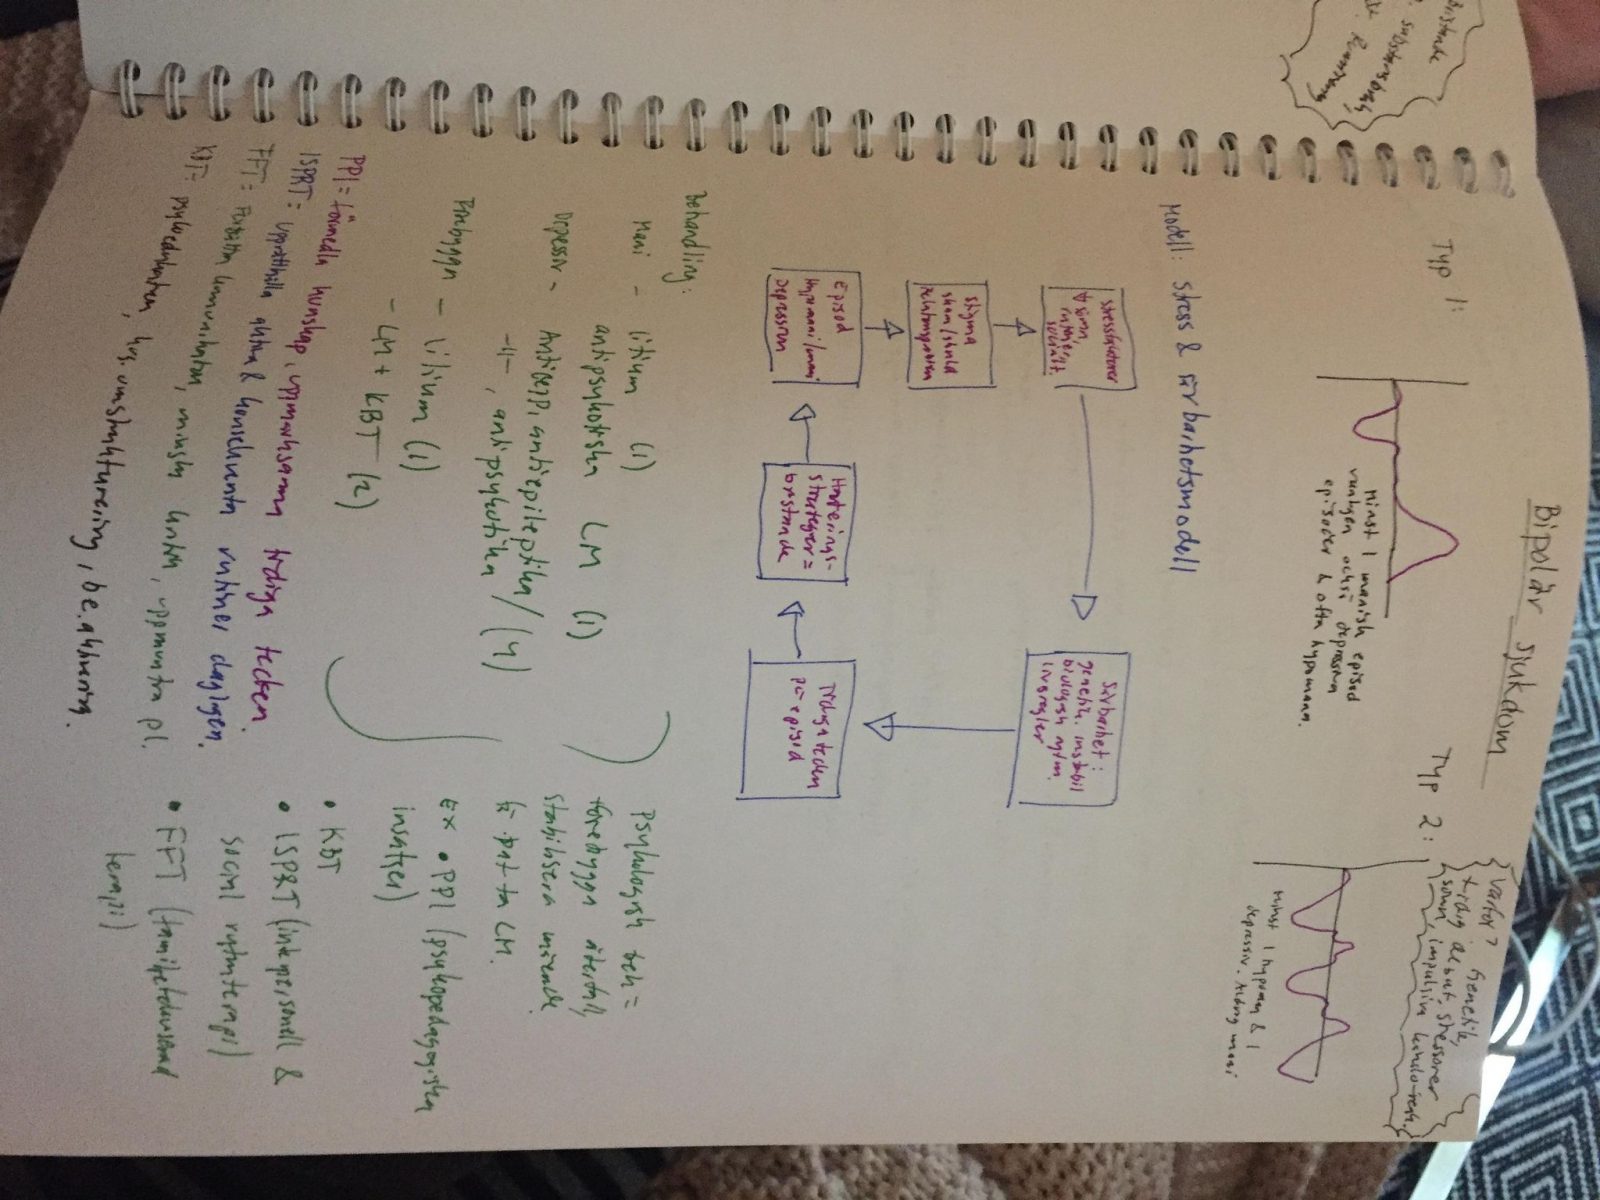 Bipolär sjukdom
Typ 1:
Minst 1 manisk episod
vanligen också depressiva
episoder & ofta hypomana.
Typ 2:
Varför? Genetik,
tidig debut, stressorer
sömn, impulsiv
minst 1 hypoman & 1
depressiv. Aldrig mani
Modell: stress & sårbarhetsmodell
stressfaktorer
sömn,
socialt.
Sårbarhet:
genetik, instabil
biologisk rytm.
livsregler
stigma
skam/skuld
relationsproblem
Episod
Hypomani/mani
Depression
Hanterings-
strategier =
bristande
Tidiga tecken
på episod
Behandling:
Mani - litium (1)
antipsykotiska LM (1)
Depressiv - Antidepp, antiepileptika/
-11-, antipsykotika (4)
Förebyggn - litium (1)
- LM + KBT (2)
Psykologisk beh =
förebygga återfall,
stabilisera mående
& pat ta LM.
Ex • PPI (psykopedagogiska
insatser)
• KBT
• ISPRT (interpersonell &
social rytmterapi)
• FFT (familjefokuserad
terapi)
PPI = förmedla kunskap, uppmärksamma tidiga tecken.
ISPRT = upprätthålla aktiva & konsekventa rutiner dagligen.
FFT = förbättra kommunikation, minska kritik, uppmuntra pl.
KBT = psykoedukation, kog. omstrukturering, be.aktivering.
substansbruk,